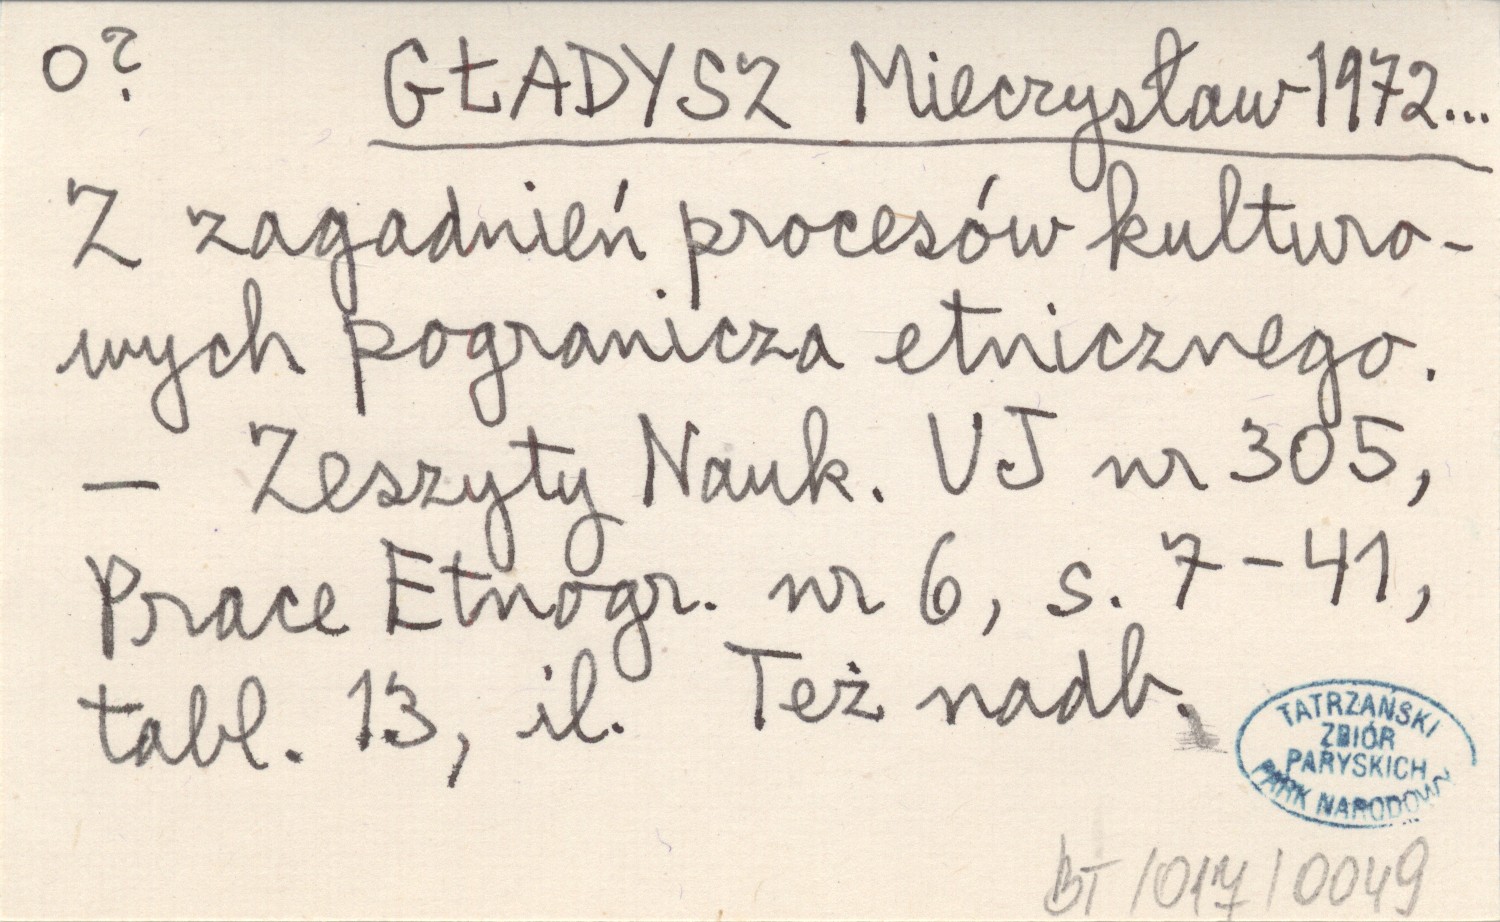 o? GŁADYSZ Mieczysław 1972...
Z zagadnień procesów kulturo-
wych pogranicza etnicznego.
— Zeszyty Nauk. UJ nr 305,
Prace Etnogr. nr 6, s. 7-41,
tabl. 13, il. Też nadb.
TATRZAŃSKI
ZBIÓR
PARYSKICH
PARK NARODOWY
BT/017/0049